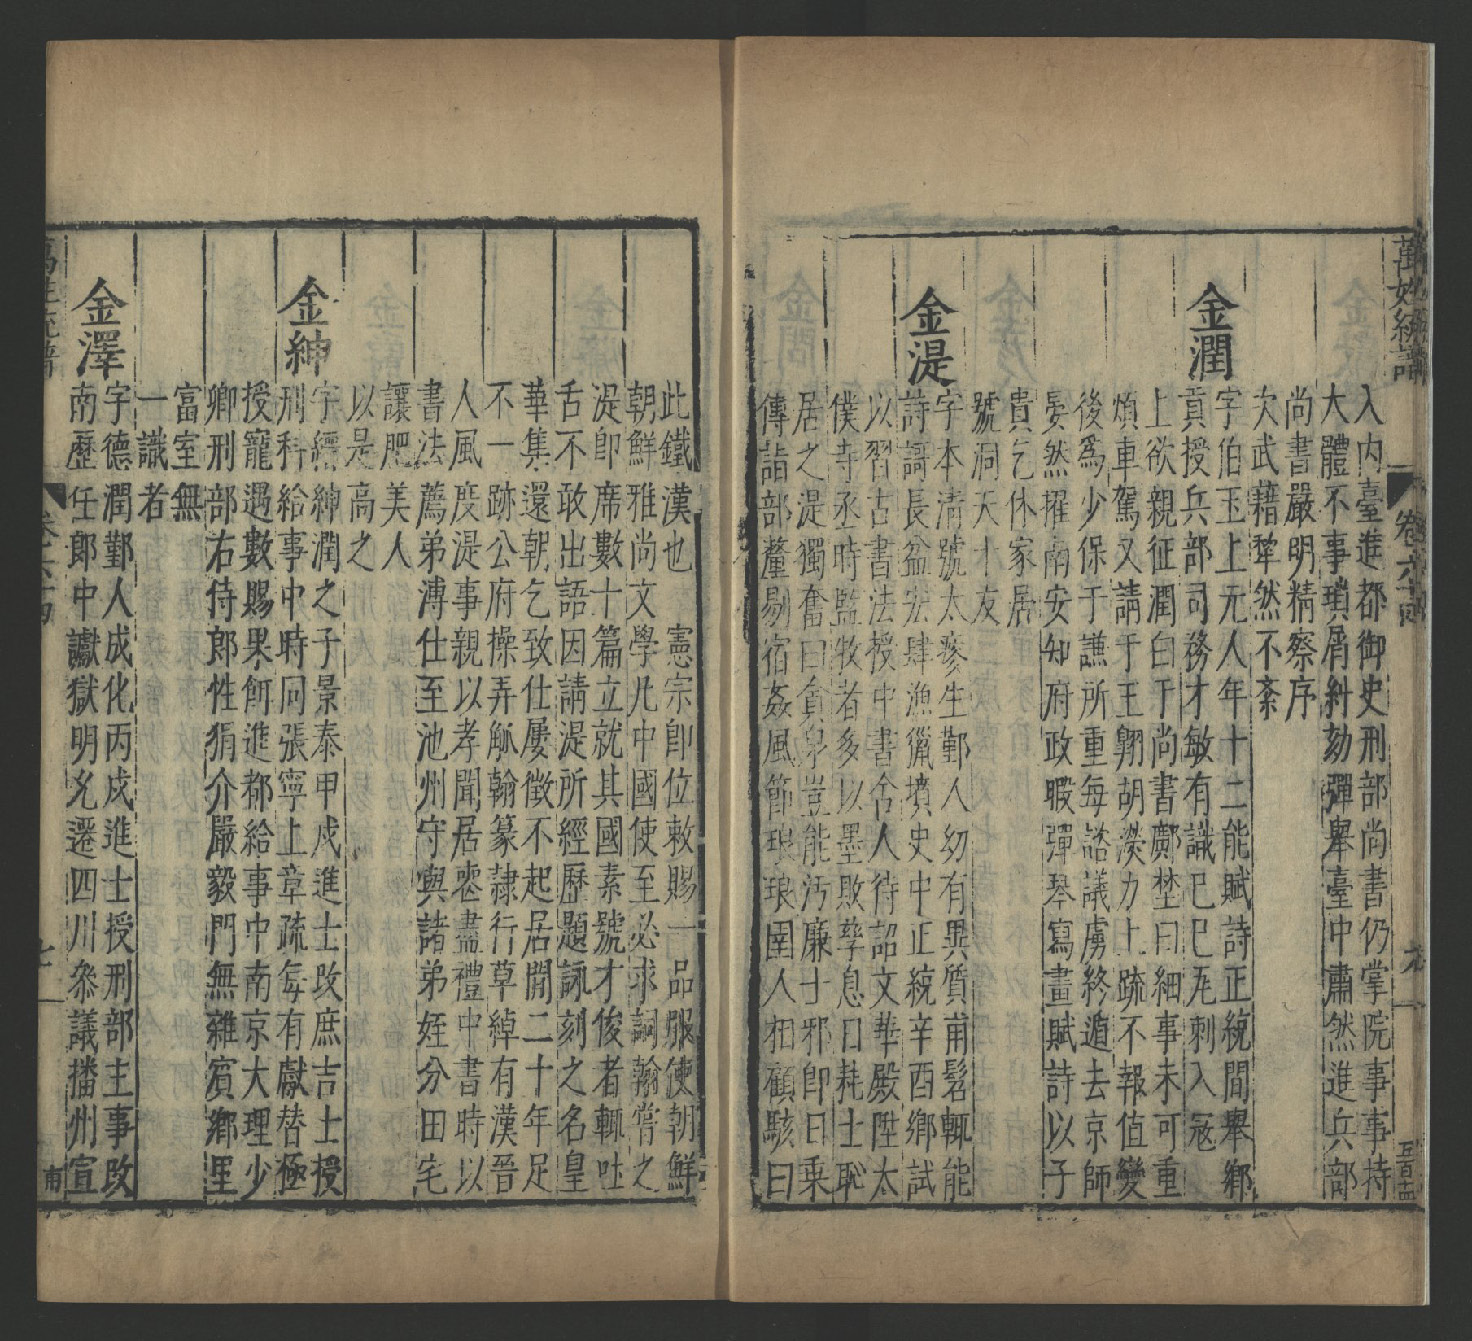 萬姓統譜
卷六十四
入内臺進都御史刑部尚書仍掌院事事持
大體不事瑣屑糾劾彈舉臺中肅然進兵部
尚書嚴明精察序
次武藉犂然不紊
金潤
字伯玉上元人年十二能賦詩正統間舉鄉
貢授兵部司務才敏有識己巳虜刺入寇
上欲親征潤白于尚書鄺埜曰細事未可重
煩車駕又請于王翺胡濙力上疏不報值變
後為少保于謙所重每諮議虜終遁去京師
晏然擢南安知府政暇彈琴寫畫賦詩以子
貴乞休家居
號洞天十友
金湜
字本清號太瘳生鄞人幼有異質甫髫輒能
詩謌長益宏肆漁獵墳史中正統辛酉鄉試
以習古書法授中書舍人待詔文華殿陞太
僕寺丞時監牧者多以墨敗孳息日耗士恥
居之湜獨奮曰貪泉豈能汚廉士邪即日乘
傳詣部釐剔宿姦風節琅琅圉人相顧駭曰
此鐵漢也　憲宗即位敕賜一品服使朝鮮
朝鮮雅尚文學凡中國使至必求詞翰嘗之
湜即席數十篇立就其國素號才俊者輒吐
舌不敢出語因請湜所經歷題詠刻之名皇
華集還朝乞致仕屢徵不起居閒二十年足
不一跡公府操弄觚翰篆隷行草綽有漢晉
人風度湜事親以孝聞居喪盡禮中書時以
書法薦弟溥仕至池州守與諸弟姪分田宅
讓肥美人
以是高之
金紳
字縉紳潤之子景泰甲戌進士改庶吉士授
刑科給事中時同張寧上章疏每有獻替極
授寵遇數賜果餌進都給事中南京大理少
卿刑部右侍郎性狷介嚴毅門無雜賓鄉里
富室無
一識者
金澤
字德潤鄞人成化丙戌進士授刑部主事改
南歷任郎中讞獄明允遷四川叅議播州宣